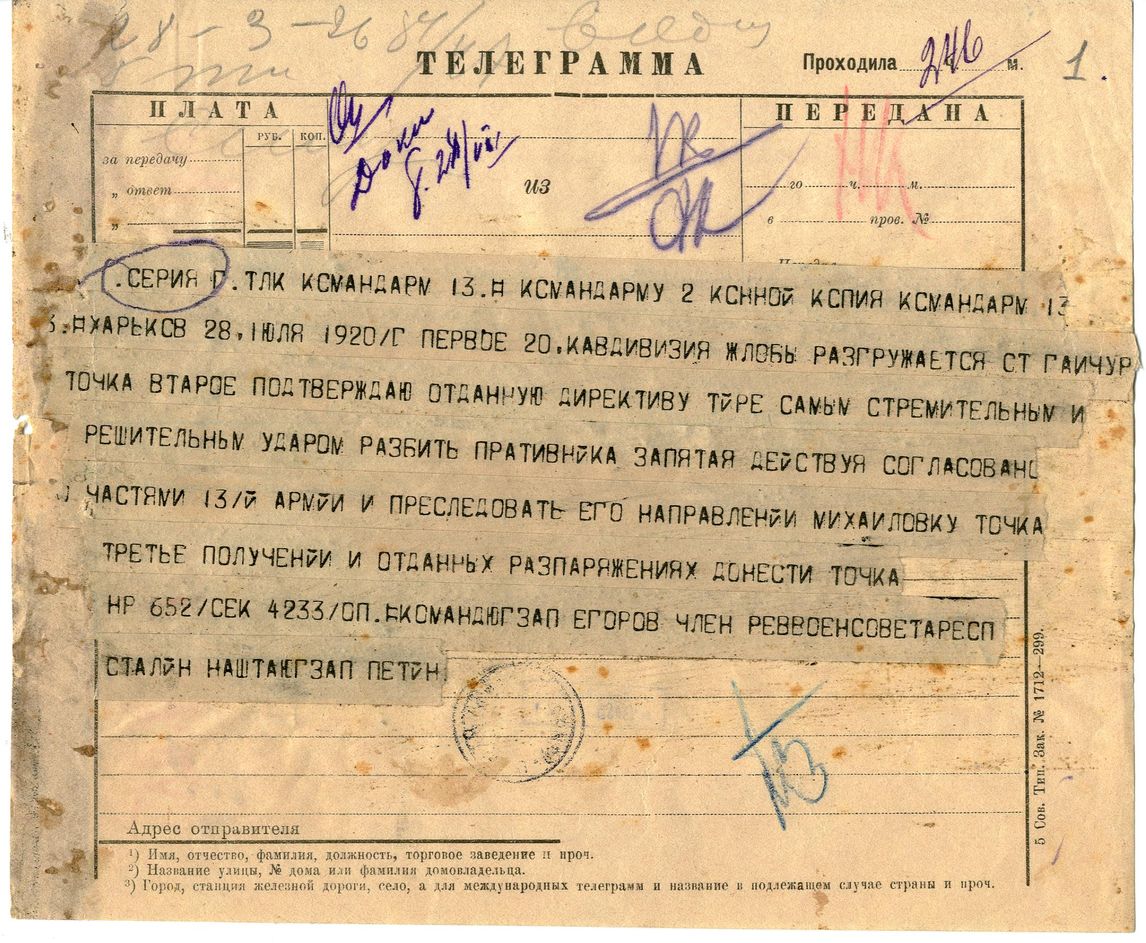 ТЕЛЕГРАММА
Проходила 246 м.
1.
ПЛАТА
РУБ. КОП.
за передачу
„ ответ
„
из
ПЕРЕДАНА
го ч. м.
в пров. №
.СЕРИЯ Г.ТЛК КСМАНДАРМ 13.¤ КСМАНДАРМУ 2 КСННОЙ КСПИЯ КСМАНДАРМ 13
.¤ХАРЬКСВ 28,IЮЛЯ 1920/Г ПЕРВОЕ 20.КАВДИВИЗИЯ ЖЛОБЫ РАЗГРУЖАЕТСЯ СТ ГАИЧУР
ТОЧКА ВТАРОЕ ПОДТВЕРЖДАЮ ОТДАННУЮ ДИРЕКТИВУ ТЙРЕ САМЫМ СТРЕМИТЕЛЬНЫМ И
РЕШИТЕЛЬНЫМ УДАРОМ РАЗБИТЬ ПРАТИВНЙКА ЗАПЯТАЯ ДЕЙСТВУЯ СОГЛАСОВАНО
ЧАСТЯМИ 13/Й АРМЙИ И ПРЕСЛЕДОВАТЬ ЕГО НАПРАВЛЕНЙИ МИХАИЛОВКУ ТОЧКА
ТРЕТЬЕ ПОЛУЧЕНЙИ И ОТДАННЫХ РАЗПАРЯЖЕНИЯХ ДОНЕСТИ ТОЧКА
НР 652/СЕК 4233/ОП.¤КОМАНДЮГЗАП ЕГОРОВ ЧЛЕН РЕВВОЕНСОВЕТАРЕСП
СТАЛЙН НАШТАЮГЗАП ПЕТЙН
Адрес отправителя
¹) Имя, отчество, фамилия, должность, торговое заведение и проч.
²) Название улицы, № дома или фамилия домовладельца.
³) Город, станция железной дороги, село, а для международных телеграмм и название в подлежащем случае страны и проч.
5 Сов. Тип. Зак. № 1712—299.